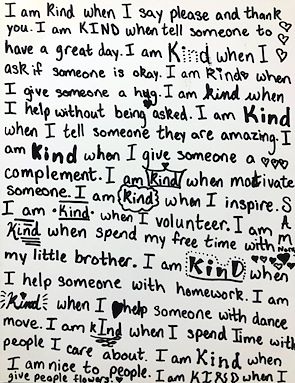 I am Kind when I say please and thank
you. I am KIND when tell someone to
have a great day. I am Kind when I
ask if someone is okay. I am Kind when
I give someone a hug. I am kind when
I help without being asked. I am Kind
when I tell someone they are amazing. I
am Kind when I give someone a
complement. I am Kind when motivate
someone. I am Kind when I inspire. S
I am Kind when I volunteer. I am A
Kind when spend my free time with M
my little brother. I am KinD when
I help someone with homework. I am
Kind when I help someone with dance
move. I am kInd when I spend Time with
people I care about. I am Kind when
I am nice to people. I am KIND when I
give people flowers.